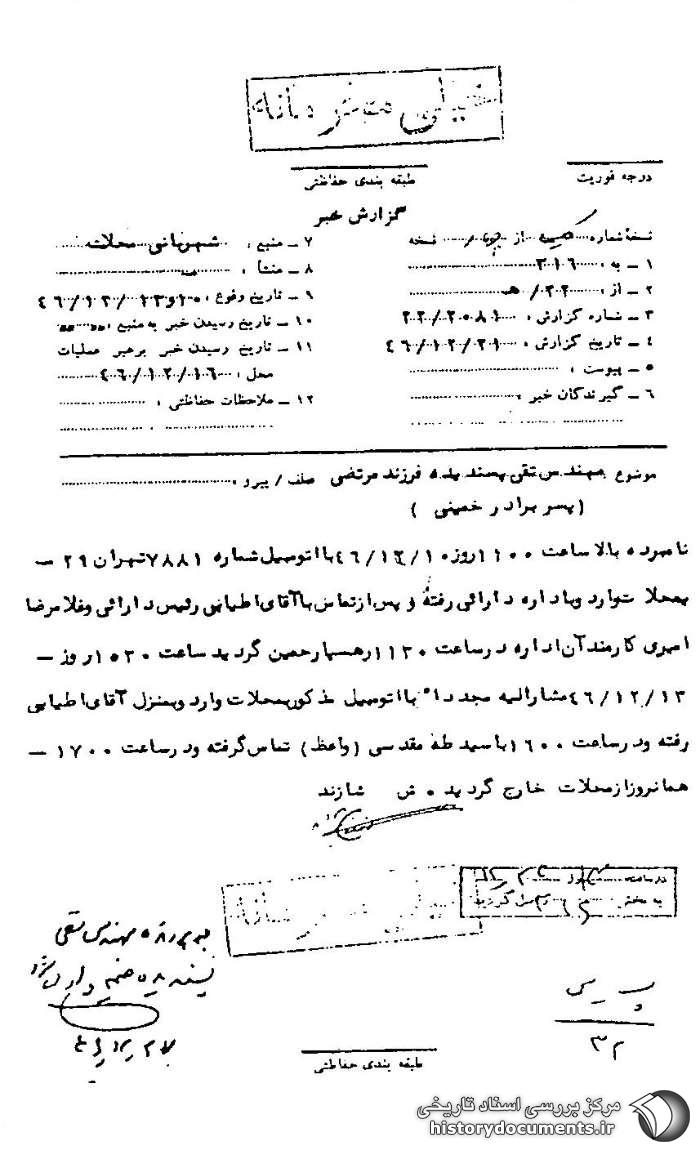 خیلی محرمانه
درجه فوریت
طبقه بندی حفاظتی
گزارش خبر
نسخهٔ شماره از نسخه
۱ ـ به : ۳۱٦
۲ ـ از : ۲۲/ ه‍
۳ ـ شماره گزارش : ۲۲/۲۰۸۱
۴ ـ تاریخ گزارش : ٤٦/۱۲/۲۱
۵ ـ پیوست :
٦ ـ گیرندگان خبر :
۷ ـ منبع : شهربانی محلات
۸ ـ منشأ :
۹ ـ تاریخ وقوع : ۱۰و۱۳/۱۲/٤٦
۱۰ ـ تاریخ رسیدن خبر به منبع :
۱۱ ـ تاریخ رسیدن خبر برهبر عملیات
محل : ٤٦/۱۲/۱٦
۱۲ ـ ملاحظات حفاظتی :
موضوع مهندس تقی پسندیده فرزند مرتضی عطف / پیرو :
( پسر برادر خمینی )
نامبرده بالا ساعت ۱۱۰۰ روز ٤٦/۱۲/۱۰ با اتومبیل شماره ۷۸۸۱ تهران ۲۹ ـ
بمحلات وارد و باداره دارائی رفته و پس از تماس با آقای اطیابی رئیس دارائی و غلامرضا
امیری کارمند آن اداره در ساعت ۱۱۳۰ رهسپار خمین گردید ساعت ۱۵۳۰ روز ـ
٤٦/۱۲/۱۳ مشارالیه مجدداً با اتومبیل مذکور بمحلات وارد و بمنزل آقای اطیابی
رفته و در ساعت ۱٦۰۰ با سید طه مقدسی (واعظ) تماس گرفته و در ساعت ۱۷۰۰ ـ
همانروز از محلات خارج گردید ۰ ش شازند
در ساعت روز
به بخش گردید
خیلی محرمانه
به پرونده مهندس تقی
پسندیده ضمیمه و
۳۲
طبقه بندی حفاظتی
مرکز بررسی اسناد تاریخی
historydocuments.ir